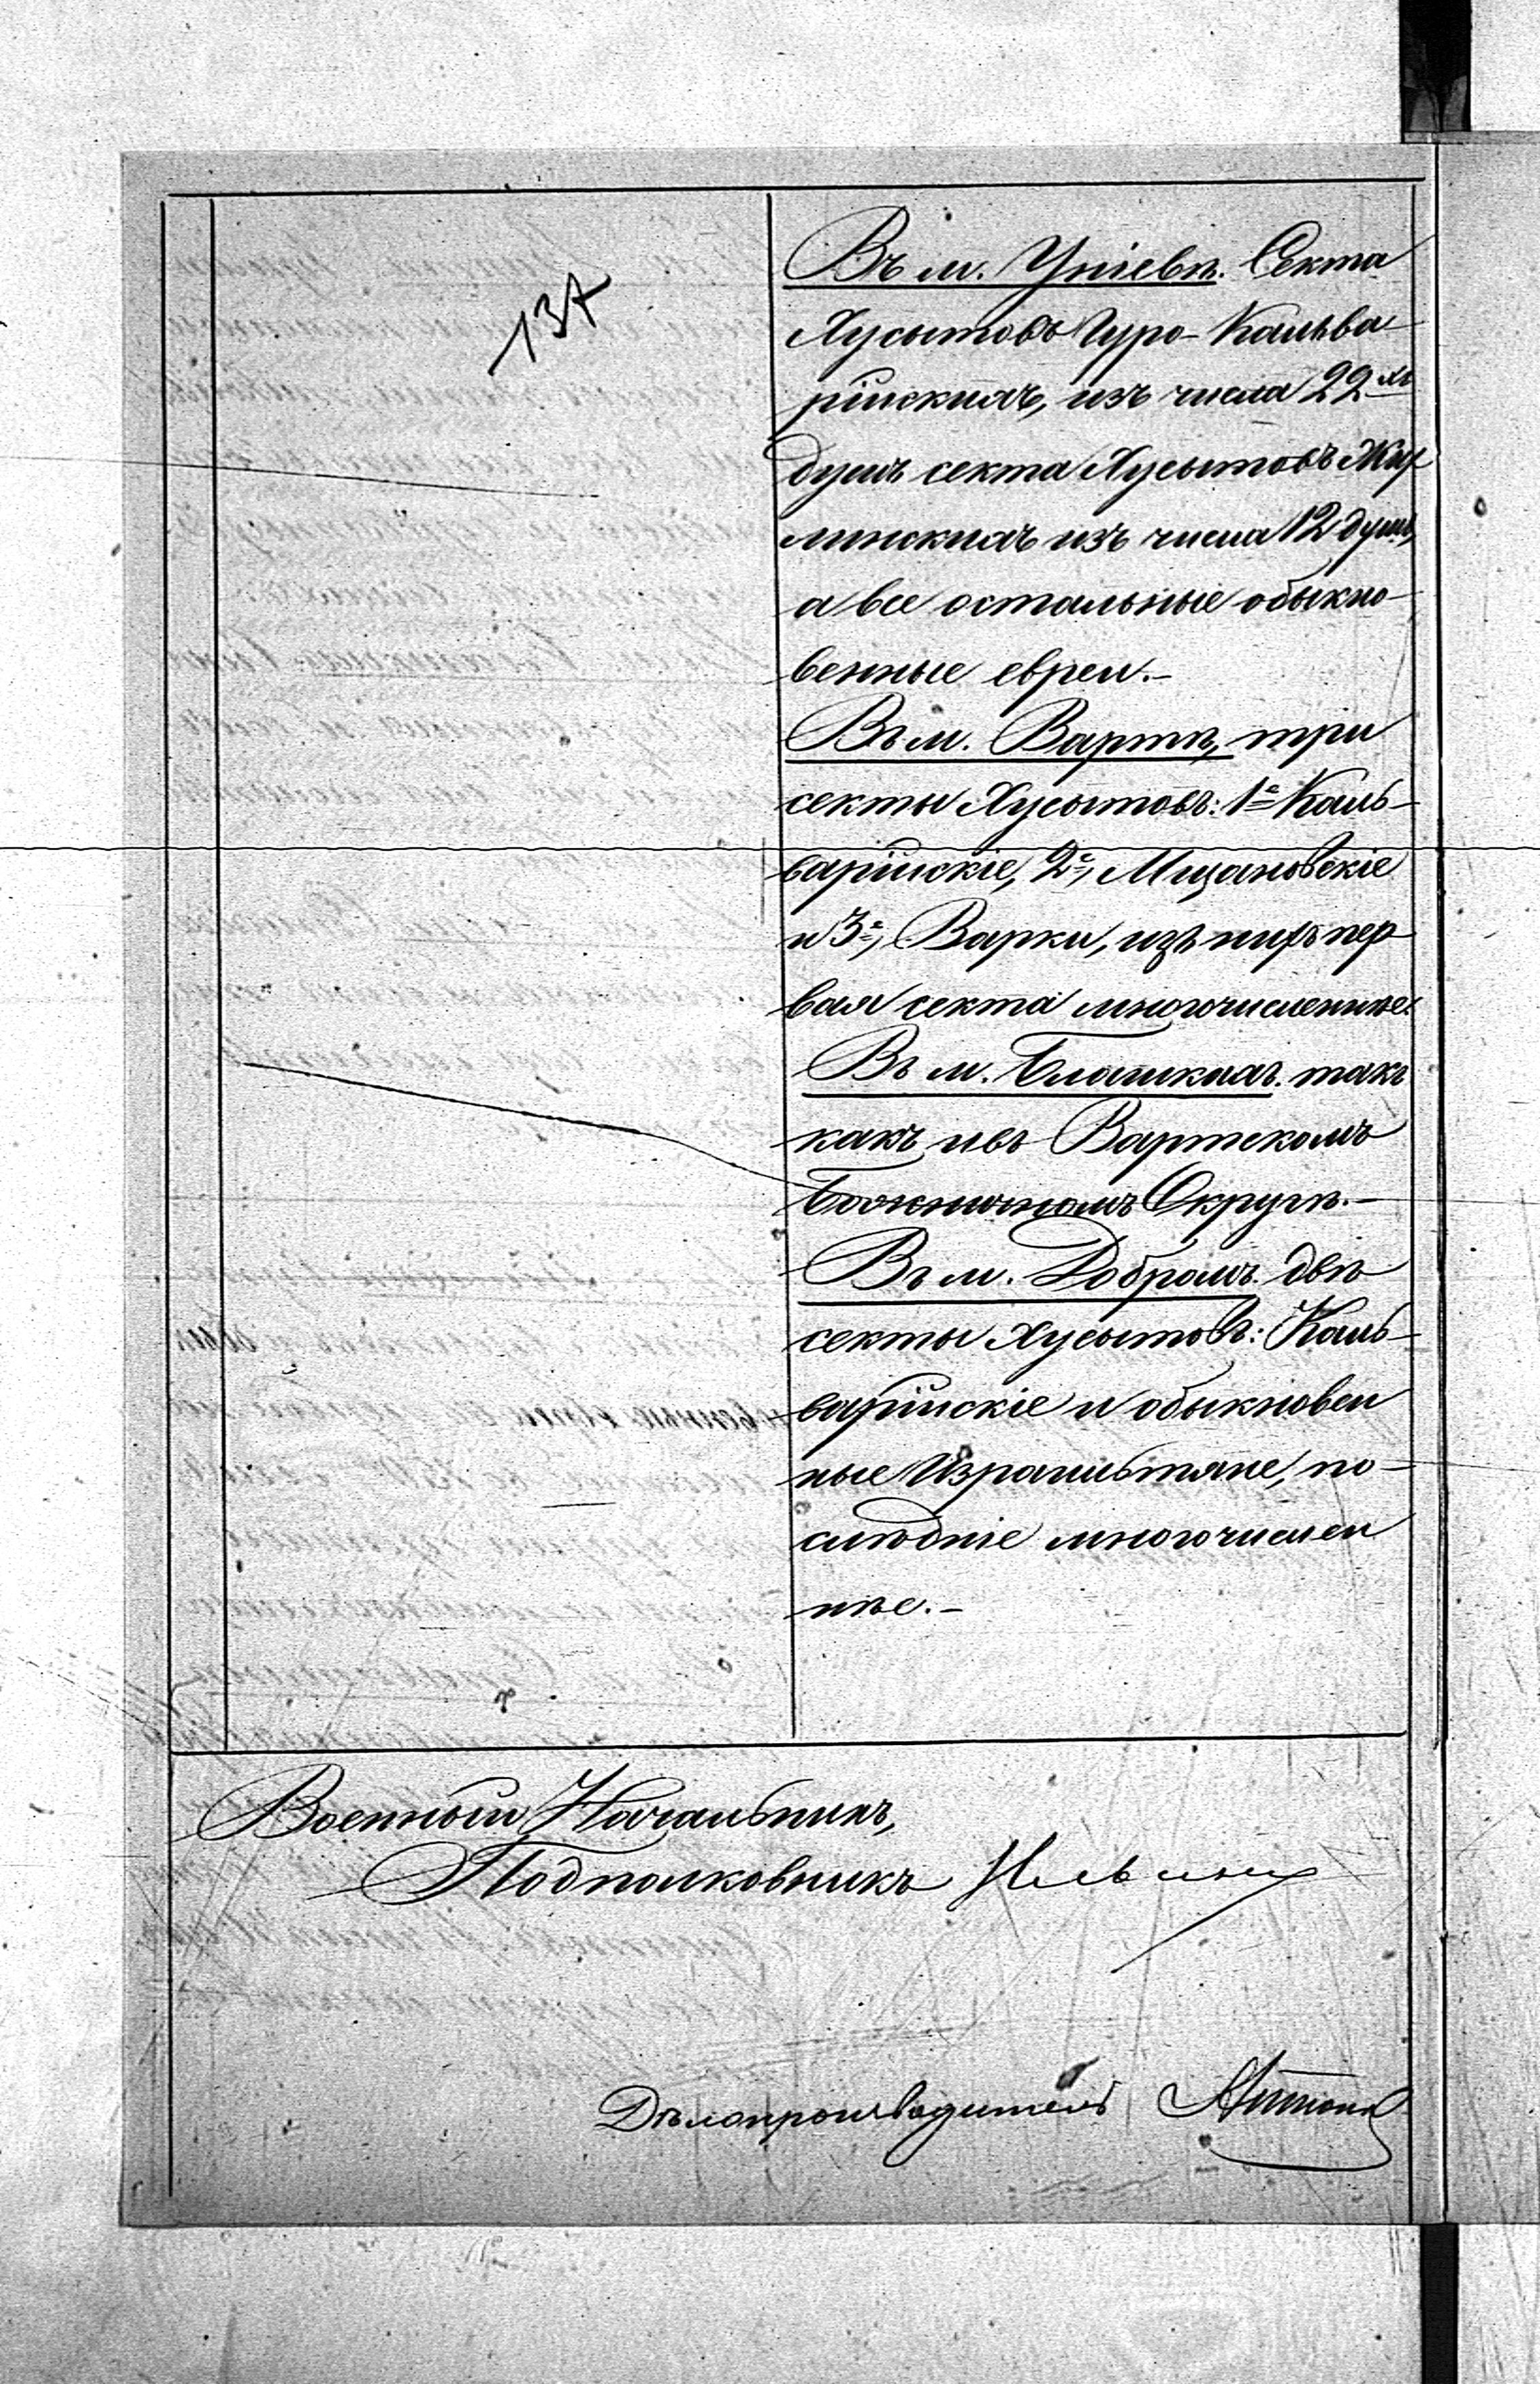 137
Въ м. Уніевѣ. Секта
Хусытовъ Гуро-Кальва-
рійскихъ, изъ числа 22хъ
душъ секта Хусытовъ Жих
линскихъ изъ числа 12 душъ,
а все остальные обыкно-
венные евреи.-
Въ м. Вартѣ, три
секты Хусытовъ: 1е Каль-
варійскіе, 2е, Мщановскіе
и 3е, Варки, изъ нихъ пер
вая секта многочисленнѣе.
Въ м. Блашкахъ. такъ
какъ и въ Вартскомъ
Божничномъ Округѣ.-
Въ м. Добромъ. двѣ
секты Хусытовъ: Каль-
варійскіе и обыкновен
ные Израильтяне, по-
слѣдніе многочислен
нѣе.-
Военный Начальникъ,
Подполковникъ
Дѣлопроизводитель